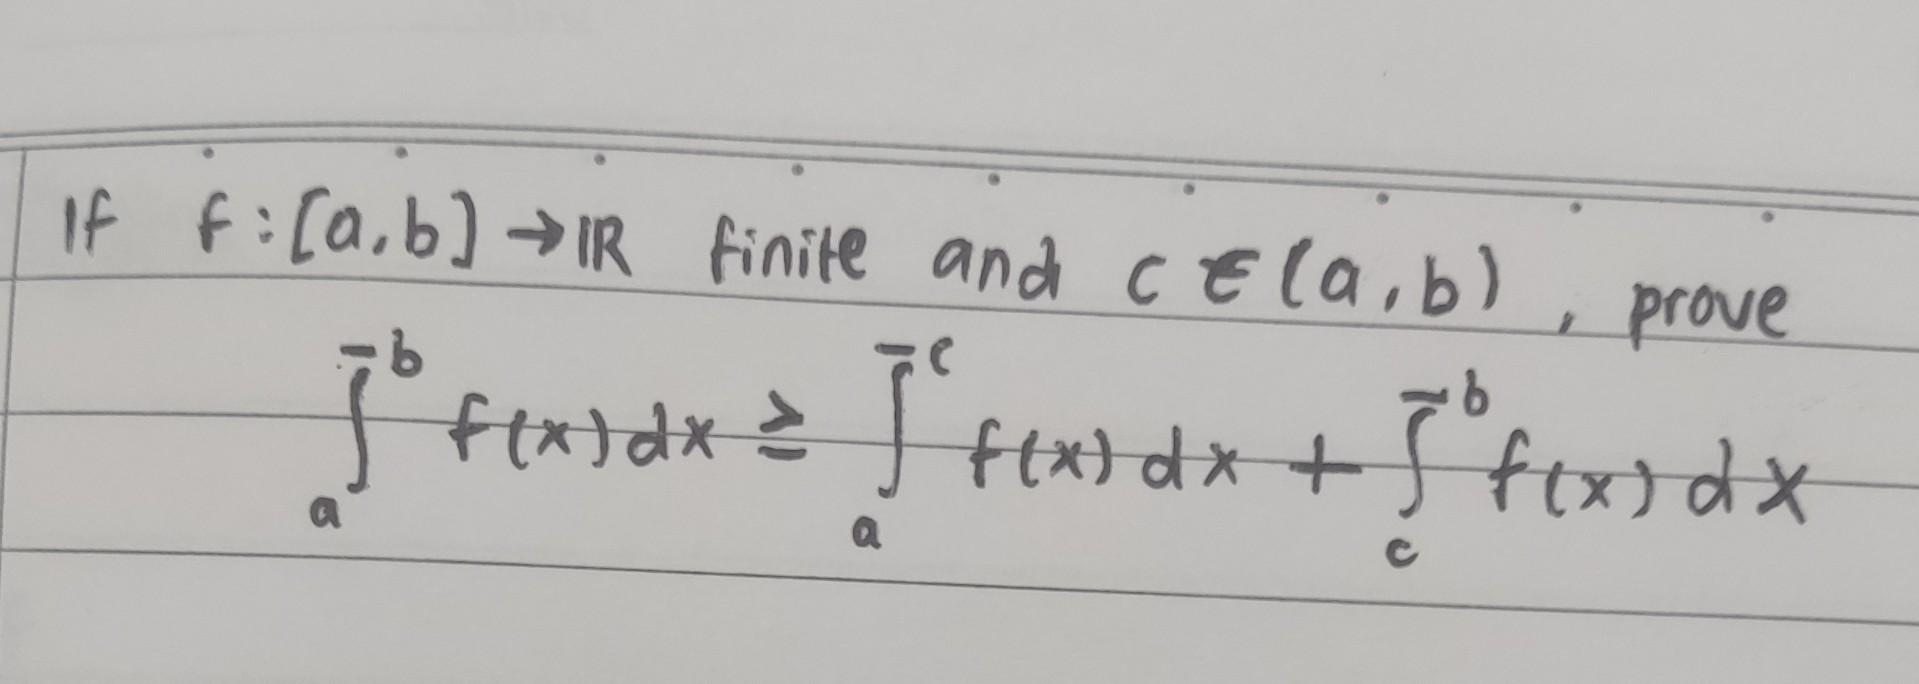 If f : [a,b] → ℝ finite and c ∈ (a,b), prove
∫̅_a^b f(x) dx ≥ ∫̅_a^c f(x) dx + ∫̅_c^b f(x) dx